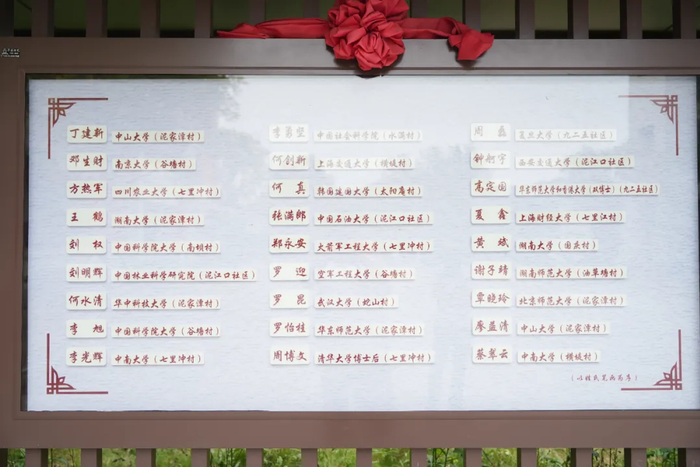 丁建新 中山大学（泥家潭村）
邓生财 南京大学（谷塘村）
方热军 四川农业大学（七里冲村）
王鹤 湖南大学（泥家潭村）
刘权 中国科学院大学（南顿村）
刘明辉 中国林业科学研究院（泥江口社区）
何水清 华中科技大学（泥家潭村）
李旭 中国科学院大学（谷塘村）
李光辉 中南大学（七里冲村）
李勇坚 中国社会科学院（水满村）
何创新 上海交通大学（横坡村）
何真 韩国延国大学（太阳庵村）
张满郎 中国石油大学（泥江口社区）
郑永安 火箭军工程大学（七里冲村）
罗迎 空军工程大学（谷塘村）
罗昆 武汉大学（蛇山村）
罗怡桂 华东师范大学（泥家潭村）
周博文 清华大学博士后（七里冲村）
周磊 复旦大学（九二五社区）
钟舸宇 西安交通大学（泥江口社区）
高定国 华东师范大学和香港大学（双博士）（九二五社区）
夏鑫 上海财经大学（七里江村）
黄斌 湖南大学（国庆村）
谢子靖 湖南师范大学（油草塘村）
覃晓玲 北京师范大学（泥家潭村）
廖益清 中山大学（泥家潭村）
蔡翠云 中南大学（横坡村）
（以姓氏笔画为序）